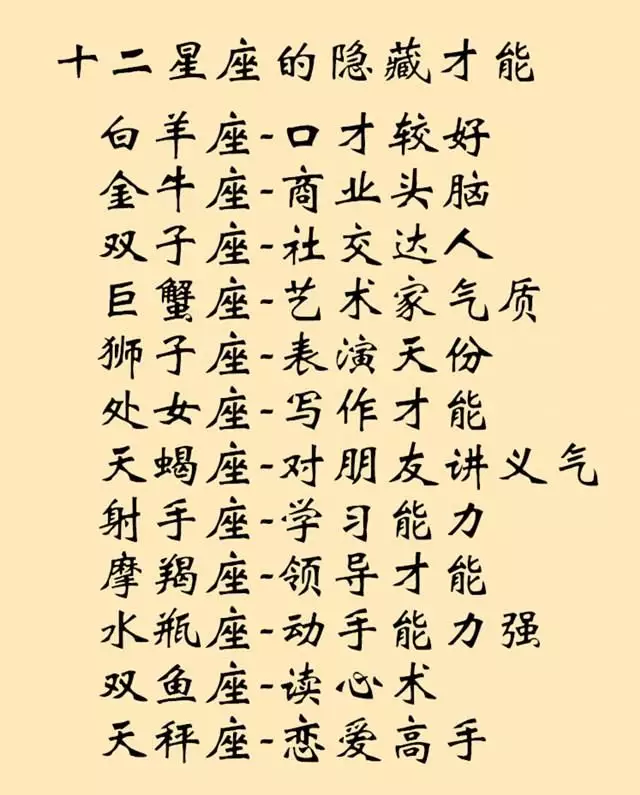 十二星座的隐藏才能
白羊座-口才较好
金牛座-商业头脑
双子座-社交达人
巨蟹座-艺术家气质
狮子座-表演天份
处女座-写作才能
天蝎座-对朋友讲义气
射手座-学习能力
摩羯座-领导才能
水瓶座-动手能力强
双鱼座-读心术
天秤座-恋爱高手